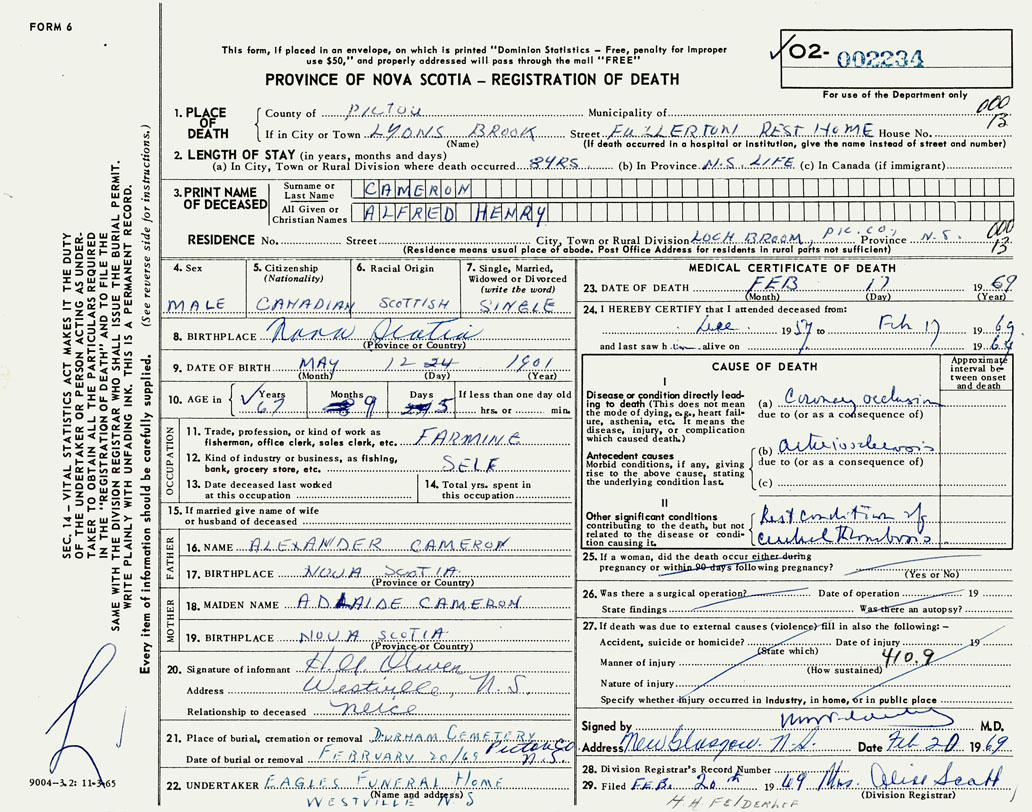 FORM 6
This form, if placed in an envelope, on which is printed "Dominion Statistics – Free, penalty for improper
use $50," and properly addressed will pass through the mail "FREE"
PROVINCE OF NOVA SCOTIA – REGISTRATION OF DEATH
02- 002234
For use of the Department only
SEC. 14 – VITAL STATISTICS ACT MAKES IT THE DUTY
OF THE UNDERTAKER OR PERSON ACTING AS UNDER-
TAKER TO OBTAIN ALL THE PARTICULARS REQUIRED
IN THE "REGISTRATION OF DEATH" AND TO FILE THE
SAME WITH THE DIVISION REGISTRAR WHO SHALL ISSUE THE BURIAL PERMIT.
WRITE PLAINLY WITH UNFADING INK. THIS IS A PERMANENT RECORD.
Every item of information should be carefully supplied. (See reverse side for instructions.)
9004-3.2: 11-3-65
1. PLACE OF DEATH
County of PICTOU Municipality of 000
If in City or Town LYONS BROOK Street FULLERTON REST HOME House No. 13
(Name) (If death occurred in a hospital or institution, give the name instead of street and number)
2. LENGTH OF STAY (in years, months and days)
(a) In City, Town or Rural Division where death occurred 8 YRS (b) In Province N.S. LIFE (c) In Canada (if immigrant)
3. PRINT NAME OF DECEASED
Surname or Last Name CAMERON
All Given or Christian Names ALFRED HENRY
RESIDENCE No. Street City, Town or Rural Division LOCH BROOM, PIC. CO, Province N.S. 000 13
(Residence means usual place of abode. Post Office Address for residents in rural parts not sufficient)
4. Sex MALE
5. Citizenship (Nationality) CANADIAN
6. Racial Origin SCOTTISH
7. Single, Married, Widowed or Divorced (write the word) SINGLE
8. BIRTHPLACE Nova Scotia
(Province or Country)
9. DATE OF BIRTH MAY 12 24 1901
(Month) (Day) (Year)
10. AGE in Years 67 Months 9 Days 5 If less than one day old
hrs. or min.
OCCUPATION
11. Trade, profession, or kind of work as fisherman, office clerk, sales clerk, etc. FARMINE
12. Kind of industry or business, as fishing, bank, grocery store, etc. SELF
13. Date deceased last worked at this occupation
14. Total yrs. spent in this occupation
15. If married give name of wife or husband of deceased
FATHER
16. NAME ALEXANDER CAMERON
17. BIRTHPLACE NOVA SCOTIA
(Province or Country)
MOTHER
18. MAIDEN NAME ADLAIDE CAMERON
19. BIRTHPLACE NOVA SCOTIA
(Province or Country)
20. Signature of informant
Address Westville, N.S.
Relationship to deceased neice
21. Place of burial, cremation or removal DURHAM CEMETERY
Date of burial or removal FEBRUARY 20/69 Pictou Co N.S.
22. UNDERTAKER EAGLES FUNERAL HOME
(Name and address)
WESTVILLE N S
MEDICAL CERTIFICATE OF DEATH
23. DATE OF DEATH FEB 17 1969
(Month) (Day) (Year)
24. I HEREBY CERTIFY that I attended deceased from:
Dec 1957 to Feb 17 1969
and last saw him alive on 1969
CAUSE OF DEATH
Approximate interval between onset and death
I
Disease or condition directly leading to death (This does not mean the mode of dying, e.g., heart failure, asthenia, etc. It means the disease, injury, or complication which caused death.)
(a) Coronary occlusion
due to (or as a consequence of)
Antecedent causes
Morbid conditions, if any, giving rise to the above cause, stating the underlying condition last.
(b) arteriosclerosis
due to (or as a consequence of)
(c)
II
Other significant conditions
contributing to the death, but not related to the disease or condition causing it.
condition of
cerebral thrombosis
25. If a woman, did the death occur either during
pregnancy or within 90 days following pregnancy?
(Yes or No)
26. Was there a surgical operation? Date of operation 19
State findings Was there an autopsy?
27. If death was due to external causes (violence) fill in also the following:–
Accident, suicide or homicide? Date of injury 19
(State which)
Manner of injury 410.9
(How sustained)
Nature of injury
Specify whether injury occurred in industry, in home, or in public place
Signed by M.D.
Address New Glasgow N.S. Date Feb 20 1969
28. Division Registrar's Record Number
29. Filed FEB. 20th 1969 Mrs. Olise Scott
(Division Registrar)